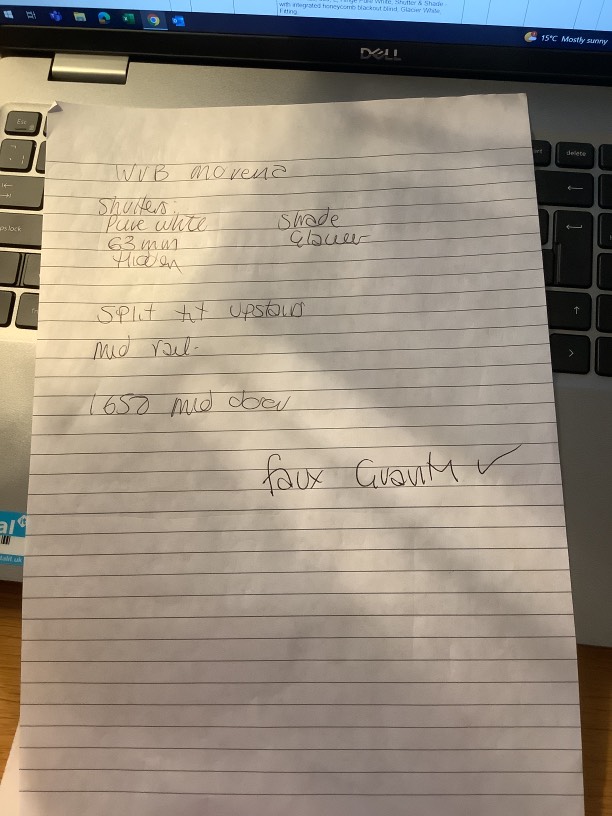 Hinge Pure White, Shutter & Shade -
with integrated honeycomb blackout blind, Glacier White,
Fitting.
15°C Mostly sunny
DELL
Esc
delete
ps lock
WVB Morena
Shutters:
Pure white
63mm
Hidden
Shade
Glacier
Split tilt upstairs
mid rail.
1650 mid door
faux Granit ✓
al